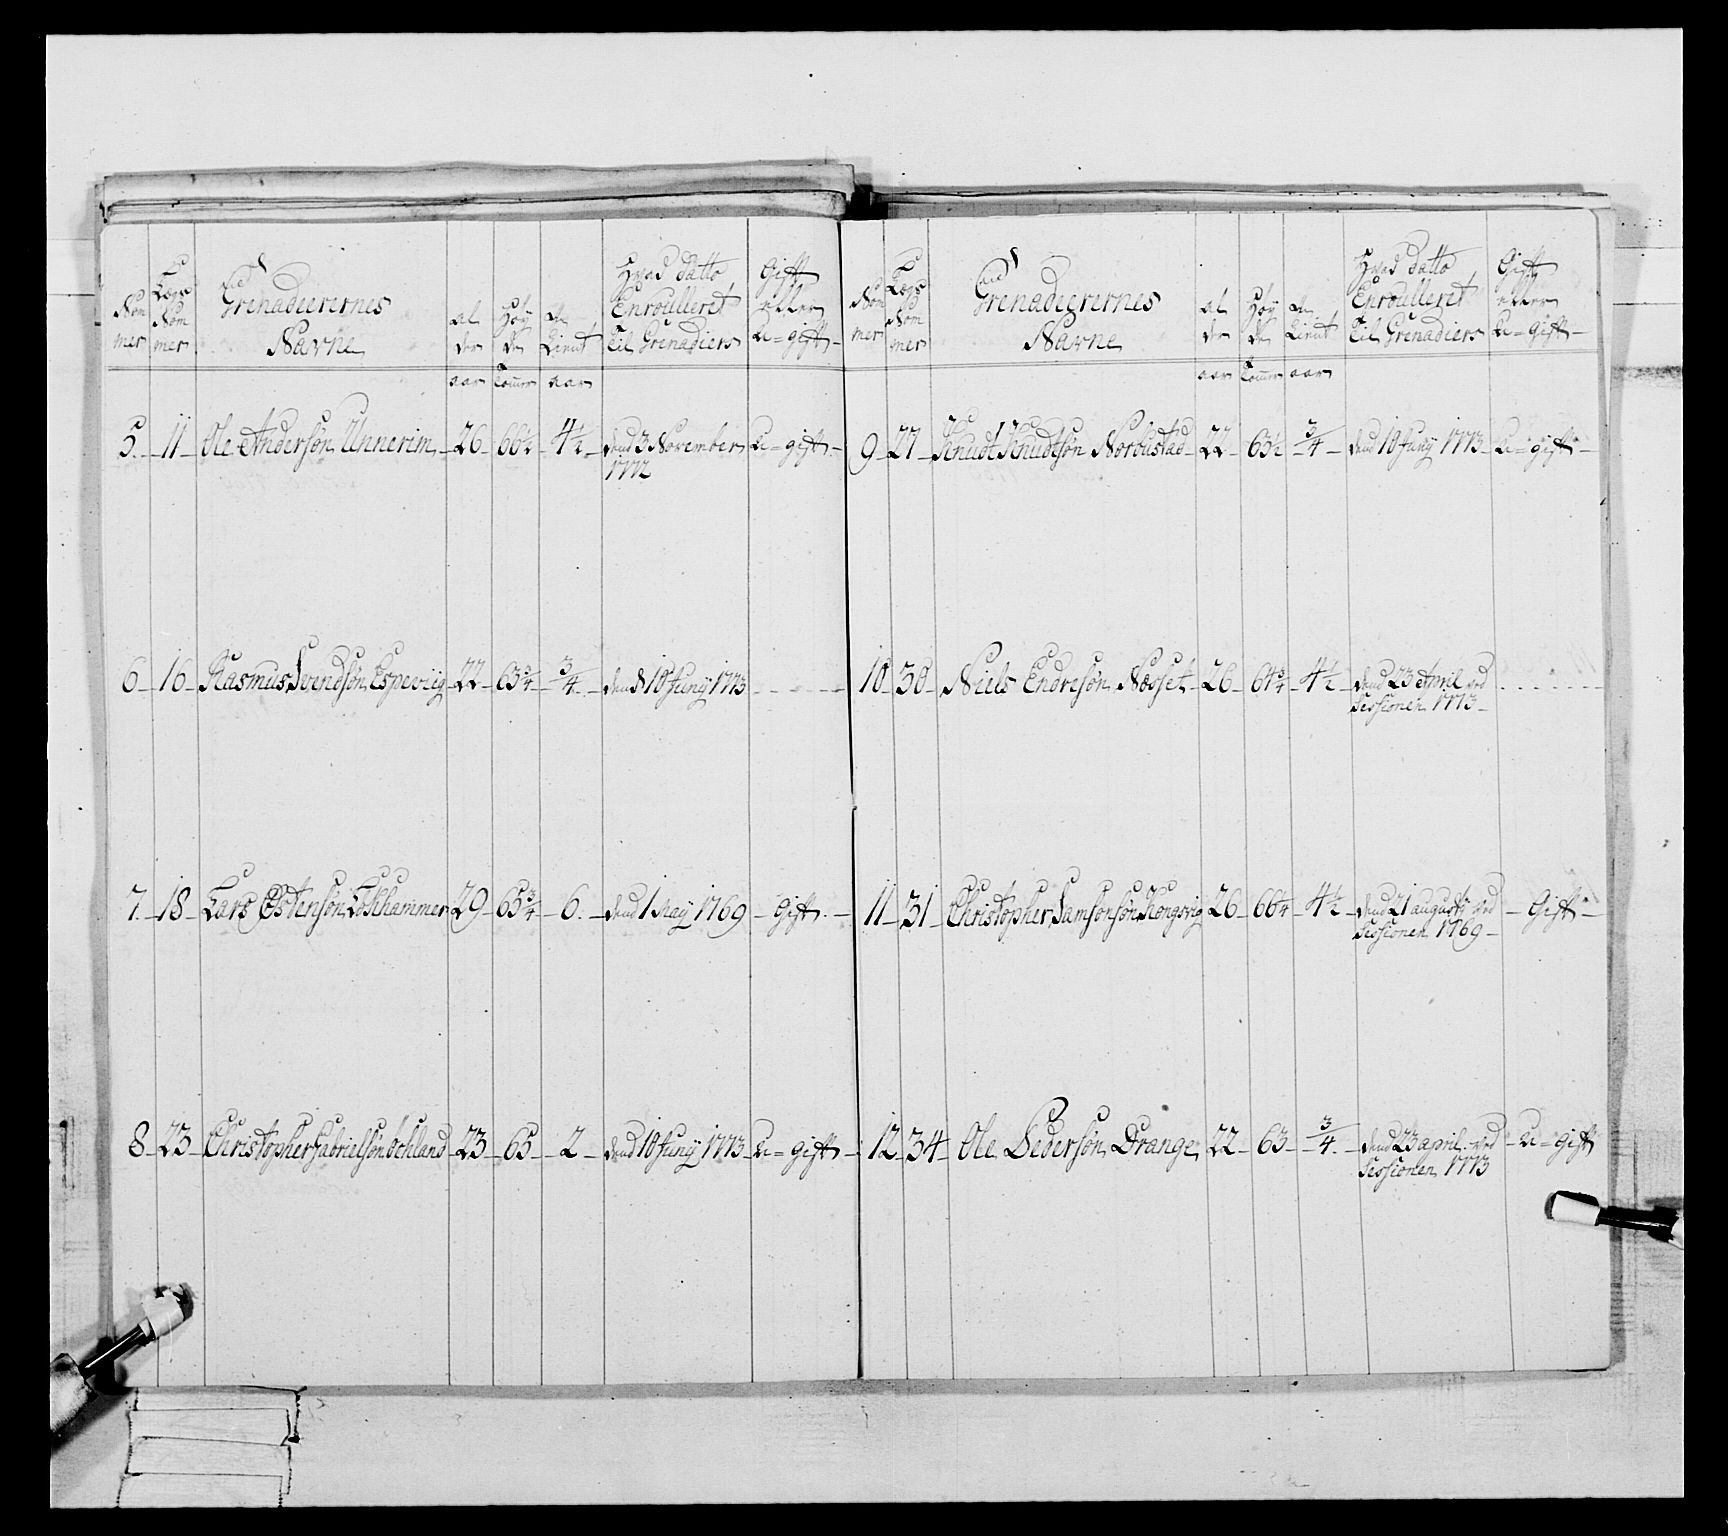 Nom
mer
Lægs
Nom
mer
Grenadeerernes
Navne
al
der
Høy
de
Tient
Hvad datto
Enroulleret
Til Grenadiers
Gift
eller
U=gift
aar Tomer aar
5. 11 Ole Andersøn Unnerim 26 66½ 4½ dend 3 November U=gift
1772
6 16 Rasmus Svendsøn Espeviig 22 63¾ ¾ dend 10 Juny 1773
7. 18 Lars Østensøn Løkhammer 29 65¾ 6 dend 1 May 1769 Gift
8 23 Christopher Gabrielsøn Øchland 23 65 2 dend 10 Juny 1773 U=gift
Nom
mer
Lægs
Nom
mer
Grenadeerernes
Navne
al
der
Høy
de
Tient
Hvad datto
Enroulleret
Til Grenadiers
Gift
eller
U=gift
aar Tomer aar
9 27 Knudt Knudtsøn Norbustad 22 63½ ¾ dend 10 Juny 1773 U=gift
10 30 Niels Endresøn Næsset 26 64¾ 4½ dend 23 April ved
Sessionen 1773
11 31 Christopher Samsonsøn Kongsvig 26 66¼ 4½ dend 21 augusty ved Gift
Sessionen 1769
12 34 Ole Pedersøn Drange 22 63 ¾ dend 23 april ved U=gift
Sessionen 1773